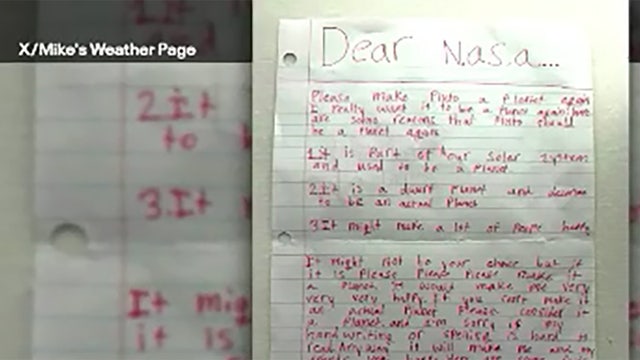 X/Mike's Weather Page
Dear Nasa...
Please make Pluto a Planet again
I really want it to be a Planet again here
are some reasons that Pluto should
be a Planet again
1 it is Part of our solar system
and used to be a Planet
2 it is a dwarf Planet and deserves
to be an actual Planet
3 It might make a lot of People happy
It might not be your choice but if
it is Please Please Please make it
a Planet it would make me very
very very happy. If you can't make it
an actual Planet Please consider it
a Planet. and I'm sorry if my
hand writing or spelling is hard to
read Anyways it will make me and my
2 it
to
3. It
It mig
it is